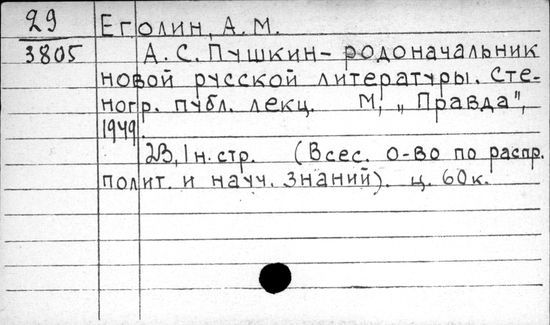 29 Еголин, А. М.
3805 А. С. Пушкин – родоначальник
новой русской литературы. Сте-
ногр. публ. лекц. М., „Правда",
1949.
23, 1 н. стр. (Всес. о-во по распр.
полит. и науч. знаний). ц. 60 к.